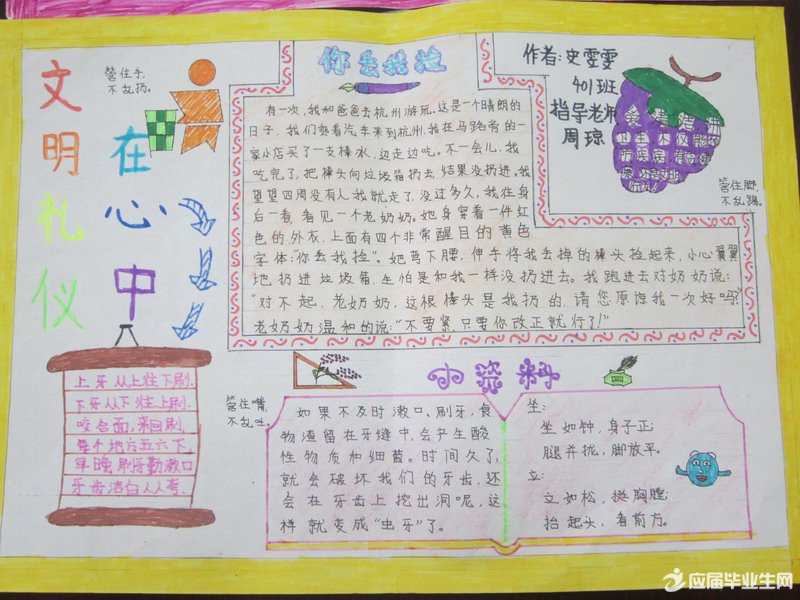 文明礼仪
在心中
管住手,
不乱扔。
你丢我捡
作者:史雯雯
401班
指导老师
周琼
有一次,我和爸爸去杭州游玩。这是一个晴朗的
日子,我们乘着汽车来到杭州。我在马路旁的一
家小店买了一支棒冰,边走边吃。不一会儿,我
吃完了,把棒头向垃圾箱扔去,结果没扔进。我
望望四周没有人,我就走了。没过多久,我往身
后一看,看见一个老奶奶。她身穿着一件红
色的外衣,上面有四个非常醒目的黄色
字体:“你丢我捡”。她弯下腰,伸手将我丢掉的棒头捡起来,小心翼翼
地扔进垃圾箱,生怕是和我一样没扔进去。我跑过去对奶奶说:
“对不起,老奶奶,这根棒头是我扔的,请您原谅我一次好吗?”
老奶奶温和的说:“不要紧,只要你改正就行了!”
管住脚,
不乱踢。
上牙从上往下刷,
下牙从下往上刷。
咬合面,来回刷,
每个地方五六下。
早晚刷牙勤漱口
牙齿洁白人人夸。
管住嘴,
不乱吐。
小资料
如果不及时漱口、刷牙,食
物渣留在牙缝中,会产生酸
性物质和细菌。时间久了,
就会破坏我们的牙齿,还
会在牙齿上挖出洞呢,这
样就变成“虫牙”了。
坐:
坐如钟,身子正;
腿并拢,脚放平。
立:
立如松,挺胸膛;
抬起头,看前方。
应届毕业生网